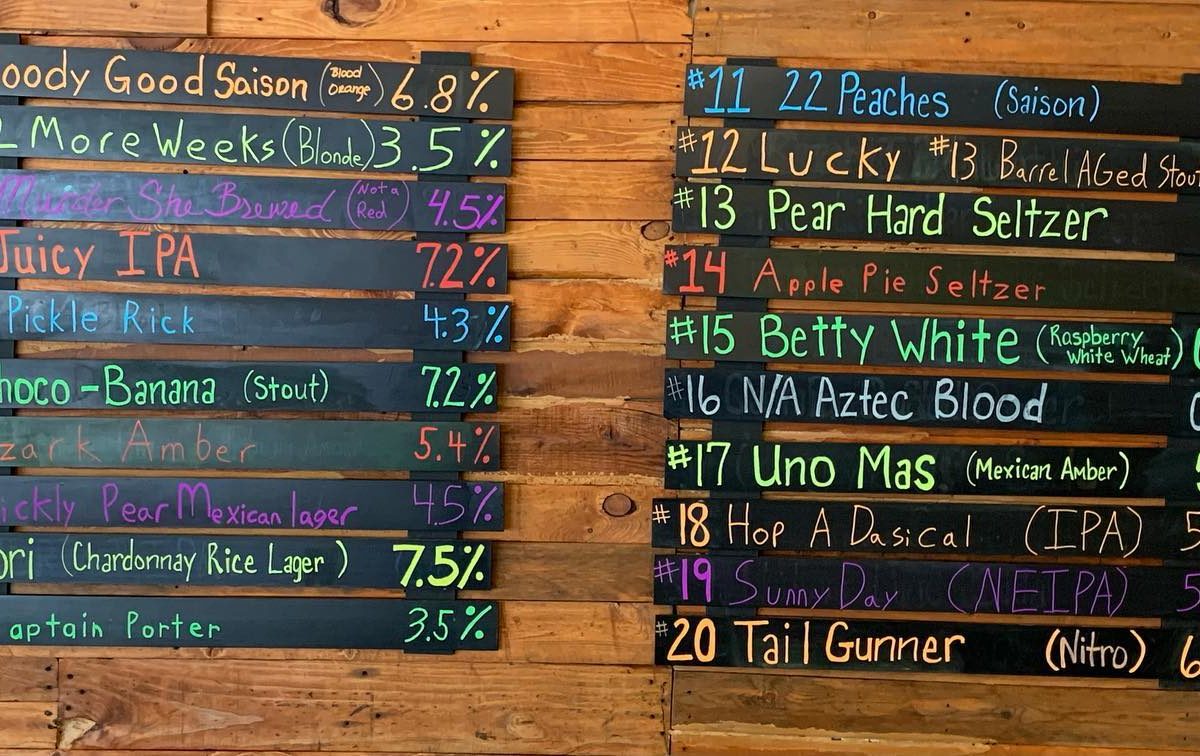 oody Good Saison (Blood Orange) 6.8%
More Weeks (Blonde) 3.5%
Murder She Brewed (Not a Red) 4.5%
Juicy IPA 7.2%
Pickle Rick 4.3%
hoco-Banana (Stout) 7.2%
zark Amber 5.4%
ickly Pear Mexican lager 4.5%
ori (Chardonnay Rice Lager) 7.5%
aptain Porter 3.5%
#11 22 Peaches (Saison)
#12 Lucky #13 Barrel AGed Stout
#13 Pear Hard Seltzer
#14 Apple Pie Seltzer
#15 Betty White (Raspberry White Wheat)
#16 N/A Aztec Blood
#17 Uno Mas (Mexican Amber)
#18 Hop A Dasical (IPA) 5
#19 Sunny Day (NEIPA) 5
#20 Tail Gunner (Nitro) 6